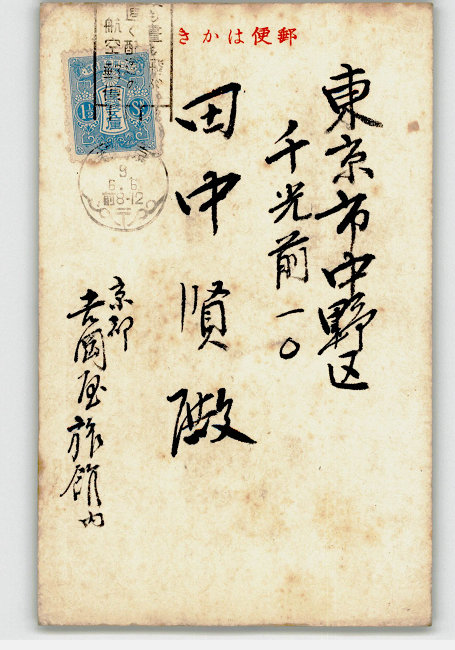 きかは便郵
東京市中野区
千光前一〇
田中賢殿
京都
吉岡屋旅館内
航空郵便
1½ Sn
9
6.6
前8-12